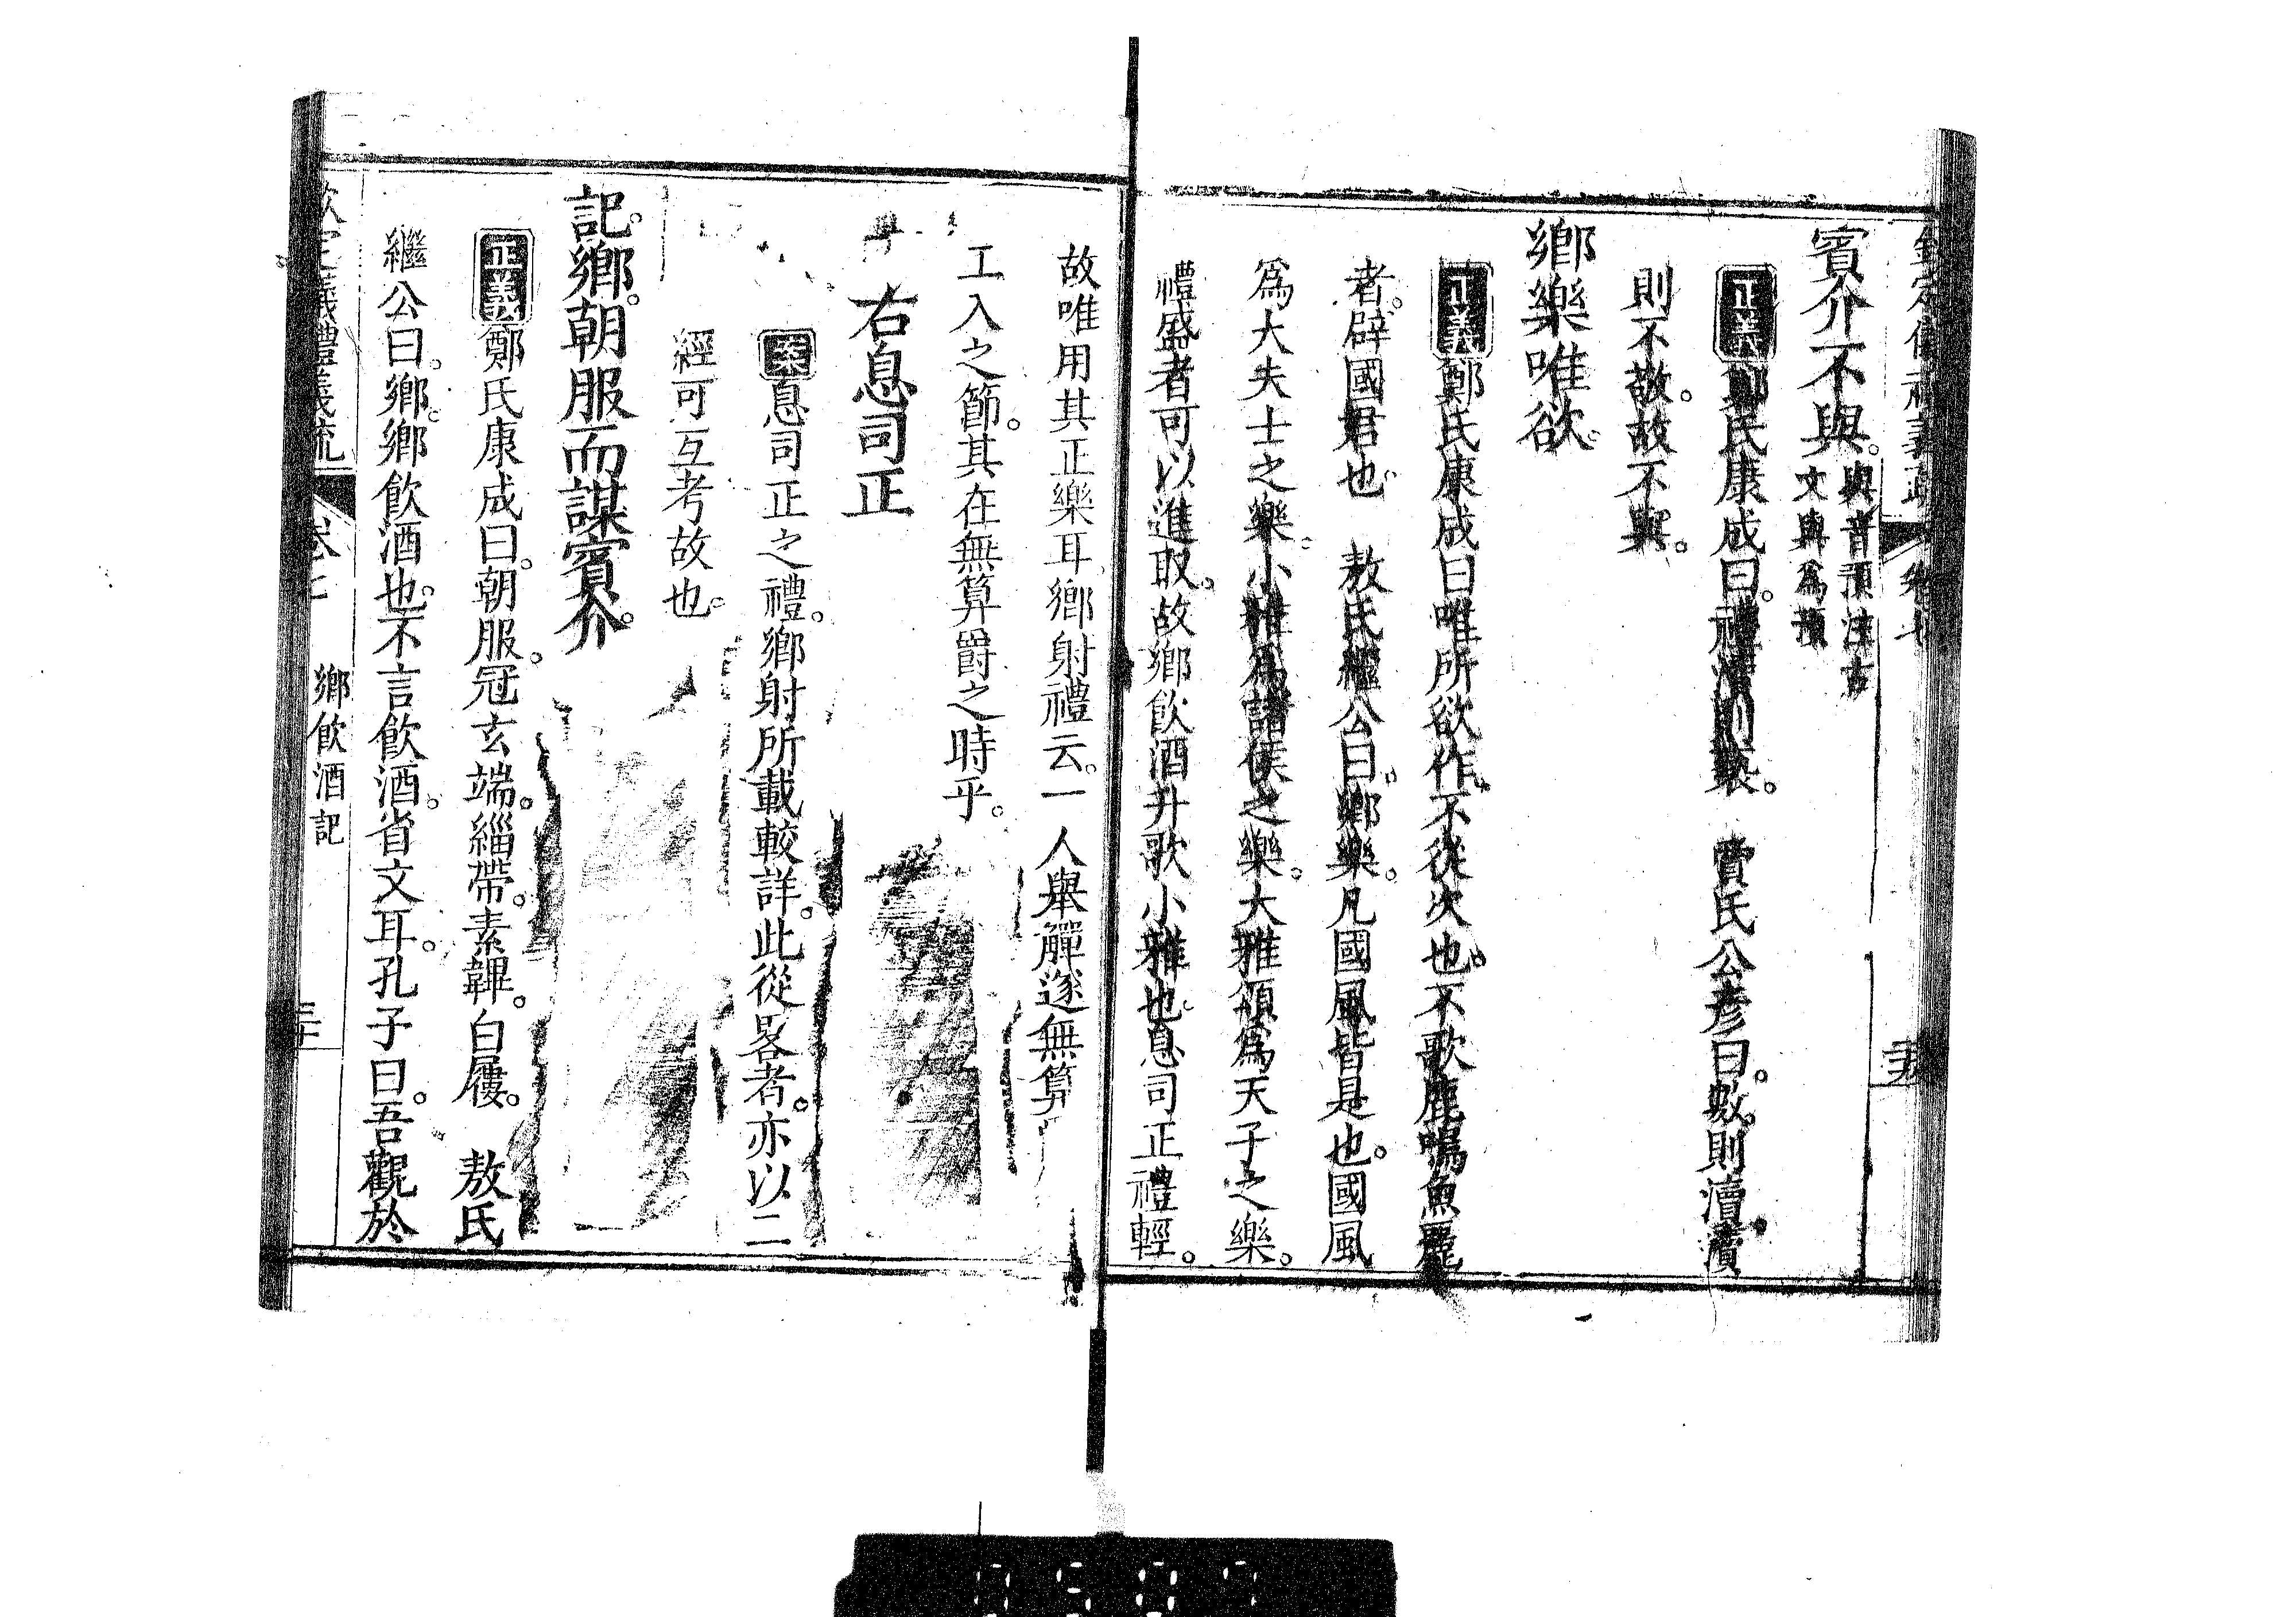 賓介不與。與音預注古文與爲預
正義鄭氏康成曰。禮瀆則褻。　賈氏公彥曰。數。則瀆。瀆
則不敬。故不與。
鄉樂唯欲。
正義鄭氏康成曰唯所欲作。不從次也。不歌鹿鳴魚麗
者。辟國君也。　敖氏繼公曰。鄉樂。凡國風皆是也。國風
爲大夫士之樂。小雅爲諸侯之樂。大雅頌爲天子之樂。
禮盛者可以進取。故鄉飲酒升歌小雅也。息司正禮輕。
故唯用其正樂耳鄉射禮云。一人舉觶遂無算
工入之節。其在無算爵之時乎。
右息司正
案息司正之禮。鄉射所載較詳。此從畧者。亦以二
經可互考故也。
記。鄉。朝服而謀賓介。
正義鄭氏康成曰。朝服。冠玄端。緇帶。素韠。白屨。　敖氏
繼公曰。鄉。鄉飲酒也。不言飲酒。省文耳。孔子曰。吾觀於
鄉飲酒記